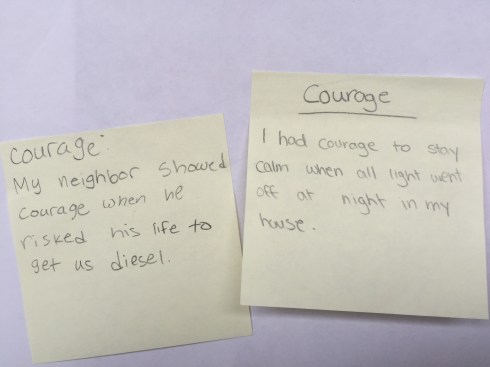 courage:
My neighbor showed
courage when he
risked his life to
get us diesel.
Courage
I had courage to stay
calm when all light went
off at night in my
house.